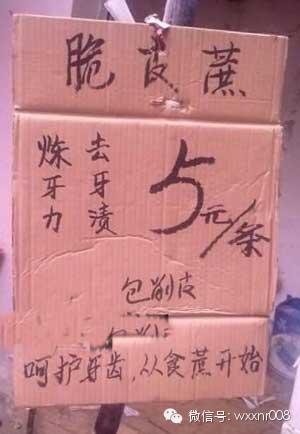 脆皮蔗
去牙渍
炼牙力
5元/条
包削皮
呵护牙齿,从食蔗开始
微信号: wxxnr008